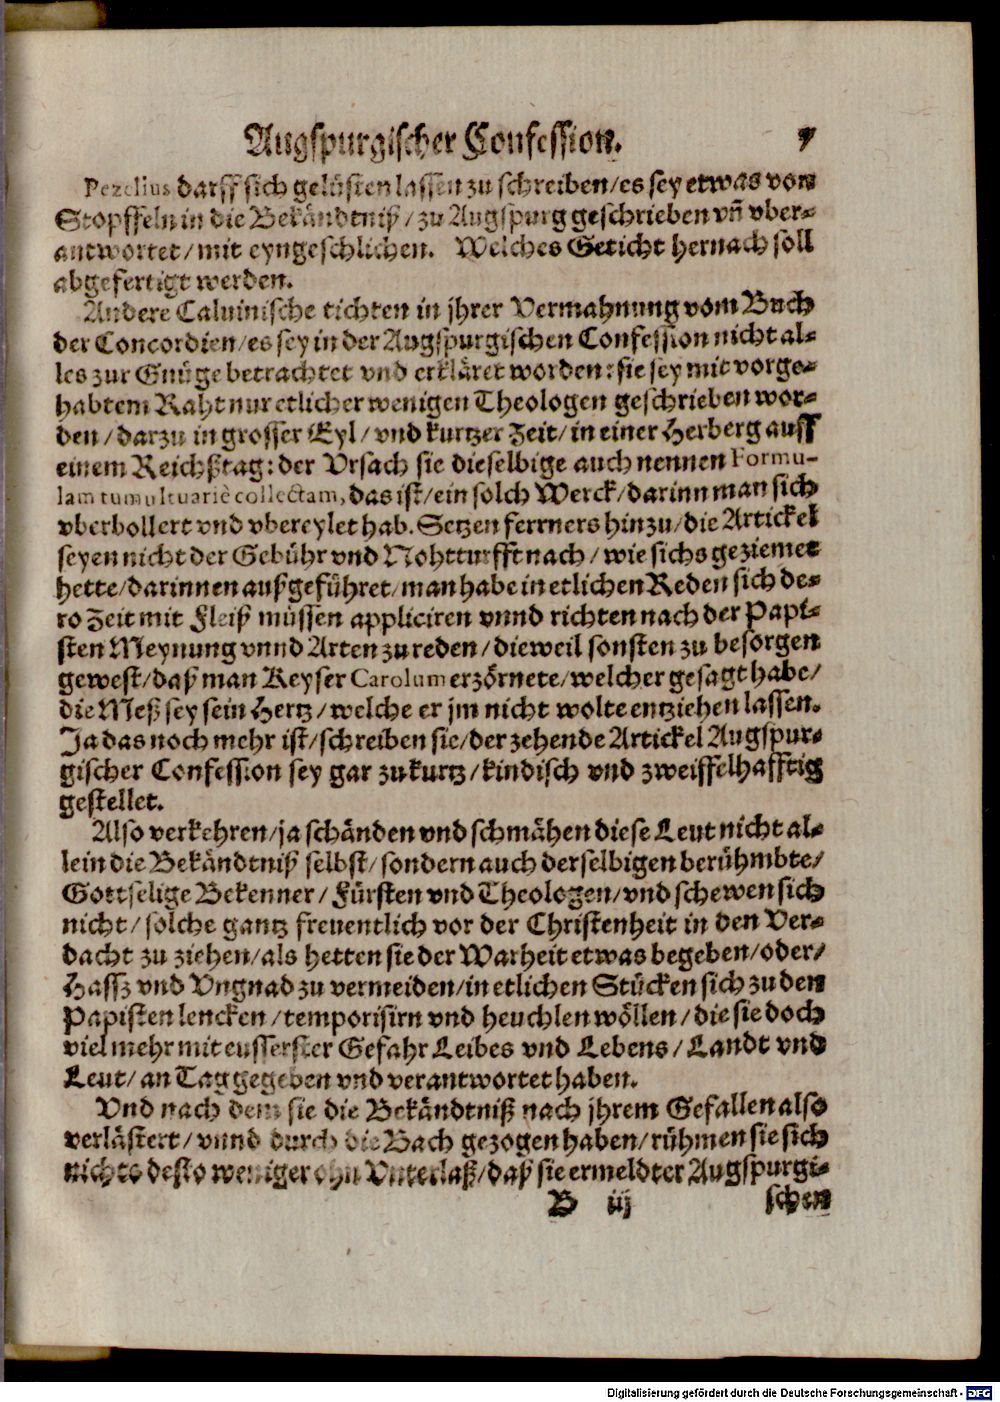 Augspurgischer Confession. 7
Pezelius darff sich gelüsten lassen zu schreiben/es sey etwas von
Stopffeln in die Bekändtniß/zu Augspurg geschrieben vñ vber-
antwortet/mit eyngeschlichen. Welches Geticht hernach soll
abgefertigt werden.
Andere Caluinische tichten in jhrer Vermahnung vom Buch
der Concordien/es sey in der Augspurgischen Confession nicht al-
les zur Gnüge betrachtet vnd erkläret worden: sie sey mit vorge-
habtem Raht nur etlicher wenigen Theologen geschrieben wor-
den/darzu in grosser Eyl/vnd kurtzer Zeit/in einer Herberg auff
einem Reichßtag: der Vrsach sie dieselbige auch nennen Formu-
lam tumultuariè collectam, das ist/ein solch Werck/darinn man sich
vberbollert vnd vbereylet hab. Setzen ferrners hinzu/die Artickel
seyen nicht der Gebühr vnd Nohtturfft nach/wie sichs geziemet
hette/darinnen außgeführet/man habe in etlichen Reden sich de-
ro Zeit mit Fleiß müssen appliciren vnnd richten nach der Papi-
sten Meynung vnnd Arten zu reden/dieweil sonsten zu besorgen
gewest/daß man Keyser Carolum erzörnete/welcher gesagt habe/
die Meß sey sein Hertz/welche er jm nicht wolte entziehen lassen.
Ja das noch mehr ist/schreiben sie/der zehende Artickel Augspur-
gischer Confession sey gar zu kurtz/kindisch vnd zweiffelhafftig
gestellet.
Also verkehren/ja schänden vnd schmähen diese Leut nicht al-
lein die Bekändtniß selbst/sondern auch derselbigen berühmbte/
Gottselige Bekenner/Fürsten vnd Theologen/vnd schewen sich
nicht/solche gantz freuentlich vor der Christenheit in den Ver-
dacht zu ziehen/als hetten sie der Warheit etwas begeben/oder/
Hassz vnd Vngnad zu vermeiden/in etlichen Stücken sich zu den
Papisten lencken/temporisirn vnd heuchlen wöllen/die sie doch
viel mehr mit eusserster Gefahr Leibes vnd Lebens/Landt vnd
Leut/an Tag gegeben vnd verantwortet haben.
Vnd nach dem sie die Bekändtniß nach jhrem Gefallen also
verlästert/vnnd durch die Bach gezogen haben/rühmen sie sich
nichts desto weniger ohn Vnterlaß/daß sie ermeldter Augspurgi-
B iij schen
Digitalisierung gefördert durch die Deutsche Forschungsgemeinschaft - DFG